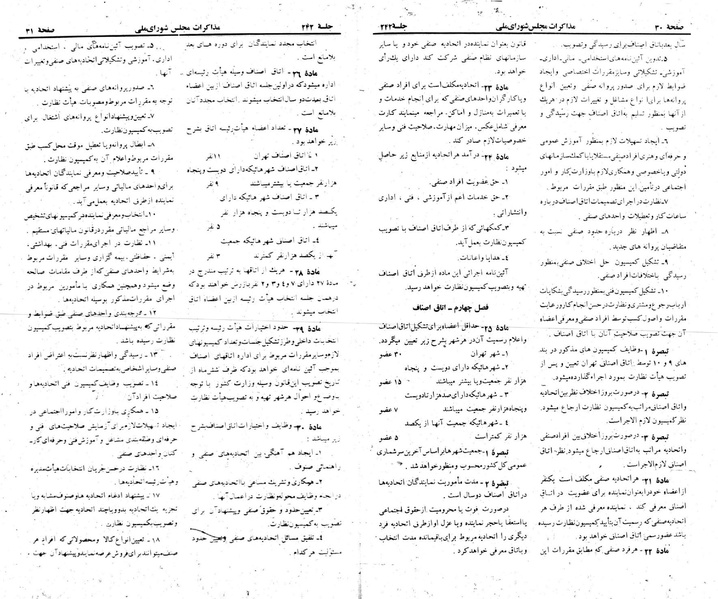 صفحهٔ ۳۰
مذاکرات مجلس شورای ملی
جلسهٔ ۲۴۲
سال بعد باتاق اصناف برای رسیدگی و تصویب.
۵ـ تدوین آئین‌نامه‌های استخدامی، مالی، اداری،
آموزشی، تشکیلاتی و سایر مقررات اختصاصی وایجاد
ضوابط لازم برای صدور پروانه صنفی و تعیین انواع
پروانه‌ها برابر انواع مشاغل و تغییرات لازم در هریک
از آنها بمنظور تسلیم به اتاق اصناف جهت رسیدگی و
تصویب.
۶ـ ایجاد تسهیلات لازم بمنظور آموزش عمومی
و حرفه‌ای و هنری افراد صنفی مستقلا یا با کمک سازمانهای
دولتی و یا خصوصی و همکاری لازم با وزارت کار و امور
اجتماعی در تأمین این منظور طبق مقررات مربوط.
۷ـ نظارت در اجرای تصمیمات اتاق اصناف درباره
ساعات کار و تعطیلات واحدهای صنفی.
۸ـ اظهار نظر درباره حدود صنفی نسبت به
متقاضیان پروانه های جدید.
۹ـ تشکیل کمیسیون حل اختلاف صنفی بمنظور
رسیدگی باختلافات افراد صنفی.
۱۰ـ تشکیل کمیسیون فنی بمنظور رسیدگی بشکایات
ارباب رجوع و مشتری و نظارت در حسن انجام کار و رعایت
مقررات و اصول کسب توسط افراد صنفی و معرفی اعضاء
آن جهت تصویب صلاحیت آنان با اتاق اصناف.
تبصرهٔ ۱ـ وظایف کمیسیون های مذکور در بند
های ۹ و ۱۰ توسط اتاق اصناف تهران تعیین و پس از
تصویب هیأت نظارت بمورد اجرا گذارده میشود.
تبصرهٔ ۲ـ در صورت بروز اختلاف نظر بین اتحادیه
و اتاق اصناف مراتب به کمیسیون نظارت ارجاع میشود.
نظر کمیسیون لازم الاجراست.
تبصرهٔ ۳ـ در صورت بروز اختلاف بین افراد صنفی
و اتحادیه مراتب به اتاق اصناف ارجاع میشود، نظر اتاق
اصناف لازم الاجراست.
مادهٔ ۲۱ـ هر اتحادیه صنفی مکلف است یکنفر
از اعضاء خود را بعنوان نماینده برای عضویت در اتاق
اصناف معرفی کند. نماینده معرفی شده از طرف هر
اتحادیه صنفی که رسمیت آن بتأیید کمیسیون نظارت رسیده
باشد عضو رسمی اتاق اصناف خواهد بود.
مادهٔ ۲۲ـ هر فرد صنفی که مطابق مقررات این
قانون بعنوان نماینده در اتحادیه صنفی خود و یا سایر
سازمانهای نظام صنفی شرکت کند دارای یک رأی
خواهد بود.
مادهٔ ۲۳ـ اتحادیه مکلف است برای افراد صنفی
و یا کارگران واحدهای صنفی که برای انجام خدمات و
یا تعمیرات به منازل و اماکن، مراجعه مینمایند کارت
معرفی شامل عکس، میزان مهارت، صلاحیت فنی و سایر
خصوصیات لازم صادر کند.
مادهٔ ۲۴ـ درآمد هر اتحادیه از منابع زیر حاصل
میشود:
۱ـ حق عضویت افراد صنفی.
۲ـ حق خدمات اعم از آموزشی، فنی، اداری
و انتشاراتی.
۳ـ کمکهائی که از طرف اتاق اصناف با تصویب
کمیسیون نظارت بعمل آید.
۴ـ هدایا و اعانات.
آئین‌نامه اجرائی این ماده از طرف اتاق اصناف
تهیه و بتصویب کمیسیون نظارت خواهد رسید.
فصل چهارم ـ اتاق اصناف
مادهٔ ۲۵ـ حداقل اعضاء برای تشکیل اتاق اصناف
و اعلام رسمیت آن در هر شهر بشرح زیر تعیین میگردد.
۱ـ شهر تهران ۳۰ عضو
۲ـ شهر هائیکه دارای دویست و پنجاه
هزار نفر جمعیت و یا بیشتر میباشند ۱۵ عضو
۳ـ شهر هائیکه دارای صد هزار تا دویست
و پنجاه هزار نفر جمعیت میباشند ۷ عضو
۴ـ شهر هائیکه جمعیت آنها از یکصد
هزار نفر کمتر است ۵ عضو
تبصرهٔ ۱ـ جمعیت شهرها بر اساس آخرین سرشماری
عمومی کل کشور محسوب و منظور خواهد شد.
تبصرهٔ ۲ـ مدت مأموریت نمایندگان اتحادیه‌ها
در اتاق اصناف دو سال است.
در صورت فوت یا محرومیت از حقوق اجتماعی
یا استعفا یا حجر نماینده و یا عزل او از طرف اتحادیه فرد
دیگری را اتحادیه مربوط برای باقیمانده مدت انتخاب
و به اتاق معرفی خواهد کرد.
جلسهٔ ۲۴۲
مذاکرات مجلس شورای ملی
صفحهٔ ۳۱
انتخاب مجدد نمایندگان برای دوره های بعد
بلامانع است.
مادهٔ ۲۶ـ اتاق اصناف وسیله هیأت رئیسه‌ای
اداره میشود که در اولین جلسه اتاق اصناف از بین اعضاء
اتاق بمدت دو سال انتخاب میشوند. انتخاب مجدد آنان
بلامانع است.
مادهٔ ۲۷ـ تعداد اعضاء هیأت رئیسه اتاق بشرح
زیر خواهد بود.
۱ـ اتاق اصناف تهران ۱۱ نفر
۲ـ اتاق اصناف شهر هائیکه دارای دویست و پنجاه
هزار نفر جمعیت یا بیشتر میباشند ۹ نفر
۳ـ اتاق اصناف شهر هائیکه دارای
یکصد هزار تا دویست و پنجاه هزار نفر
میباشند. ۵ نفر
۴ـ اتاق اصناف شهر هائیکه جمعیت
آنها از یکصد هزار نفر کمترند ۳ نفر
مادهٔ ۲۸ـ هریک از اتاقها به ترتیب مندرج در
مادهٔ ۲۷ دارای ۷ و ۴ و ۳ و ۲ نفر بازرس خواهند بود که
در همان جلسه انتخاب هیأت رئیسه از بین اعضاء اتاق
انتخاب میشوند.
مادهٔ ۲۹ـ حدود اختیارات هیأت رئیسه و ترتیب
انتخابات داخلی و طرز تشکیل جلسات و تعداد کمیسیونهای
لازم و سایر مقررات مربوط برای اداره اتاقهای اصناف
بموجب آئین نامه‌ای خواهد بود که ظرف ششماه از
تاریخ تصویب این قانون وسیله وزارت کشور با توجه
بوضع و احوال هر شهر تهیه و به تصویب هیأت نظارت
خواهد رسید.
مادهٔ ۳۰ـ وظایف و اختیارات اتاق اصناف بشرح
زیر میباشد:
۱ـ ایجاد هم آهنگی بین اتحادیه های صنفی و
راهنمائی صنوف.
۲ـ همکاری و تشریک مساعی با اتحادیه های صنفی
در انجام وظایف محوله و نظارت در اعمال آنها.
۳ـ تعیین حدود و حقوق صنفی و پیشنهاد آن برای
تصویب به کمیسیون نظارت.
۴ـ تلفیق مسائل اتحادیه های صنفی و تعیین حدود
مسئولیت هر کدام.
۵ـ تصویب آئین‌نامه‌های مالی، استخدامی و
اداری، آموزشی و تشکیلاتی اتحادیه های صنفی و تغییرات
آنها.
۶ـ صدور پروانه‌های صنفی به پیشنهاد اتحادیه با
توجه به مقررات مربوط و مصوبات هیأت نظارت.
۷ـ تعیین و پیشنهاد انواع پروانه‌های اشتغال برای
تصویب به کمیسیون نظارت.
۸ـ ابطال پروانه و یا تعطیل موقت محل کسب طبق
مقررات مربوط و اعلام آن به کمیسیون نظارت.
۹ـ تأیید صلاحیت و معرفی نمایندگان اتحادیه‌ها
برای واحدهای مالیاتی و سایر مراجعی که قانوناً معرفی
نماینده از طرف اتحادیه بعمل می‌آید.
۱۰ـ انتخاب و معرفی نماینده در کمیسیونهای تشخیص
و سایر مراجع مالیاتی مقرر در قانون مالیاتهای مستقیم.
۱۱ـ نظارت در اجرای مقررات فنی، بهداشتی،
ایمنی، حفاظتی، بیمه گزاری و سایر مقررات مربوط
به شرایط واحدهای صنفی که از طرف مقامات صالحه
وضع میشود و همچنین همکاری با مأمورین مربوط در
اجرای مقررات مذکور بوسیله اتحادیه‌ها.
۱۲ـ درجه‌بندی واحدهای صنفی طبق ضوابط و
مقرراتی که به پیشنهاد اتحادیه مربوط بتصویب کمیسیون
نظارت رسیده باشد.
۱۳ـ رسیدگی و اظهار نظر نسبت به اعتراض افراد
صنفی و سایر اشخاص به تصمیمات اتحادیه.
۱۴ـ تصویب وظایف کمیسیون فنی اتحادیه‌ها و
صلاحیت افراد آن
۱۵ـ همکاری با وزارت کار و امور اجتماعی در
ایجاد تسهیلات لازم برای آزمایش صلاحیت های فنی و
حرفه‌ای و طبقه‌بندی مشاغل و آموزش فنی و حرفه‌ای کار
کنان واحدهای صنفی.
۱۶ـ نظارت در حسن جریان انتخابات هیأت مدیره
و هیأت رئیسه اتحادیه‌ها.
۱۷ـ پیشنهاد ادغام اتحادیه ها و صنوف مشابه و یا
تجزیه یک اتحادیه بدو یا چند اتحادیه جهت اظهار نظر
و تصویب به کمیسیون نظارت.
۱۸ـ تعیین انواع کالا و محصولاتی که افراد هر
صنف میتوانند برای فروش عرضه نمایند و پیشنهاد آن جهت